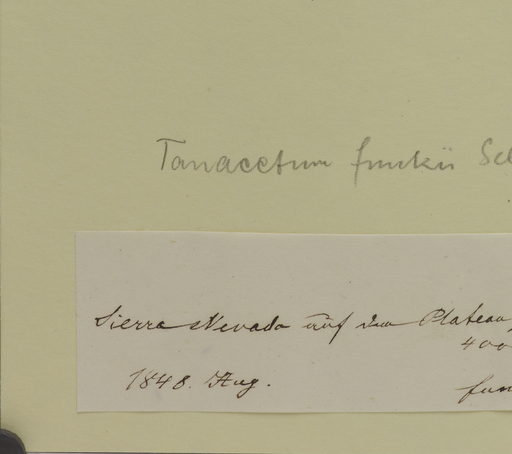 Tanacetum funkii Sch
Sierra Nevada auf dem Plateau,
400
1848. Aug.
fun